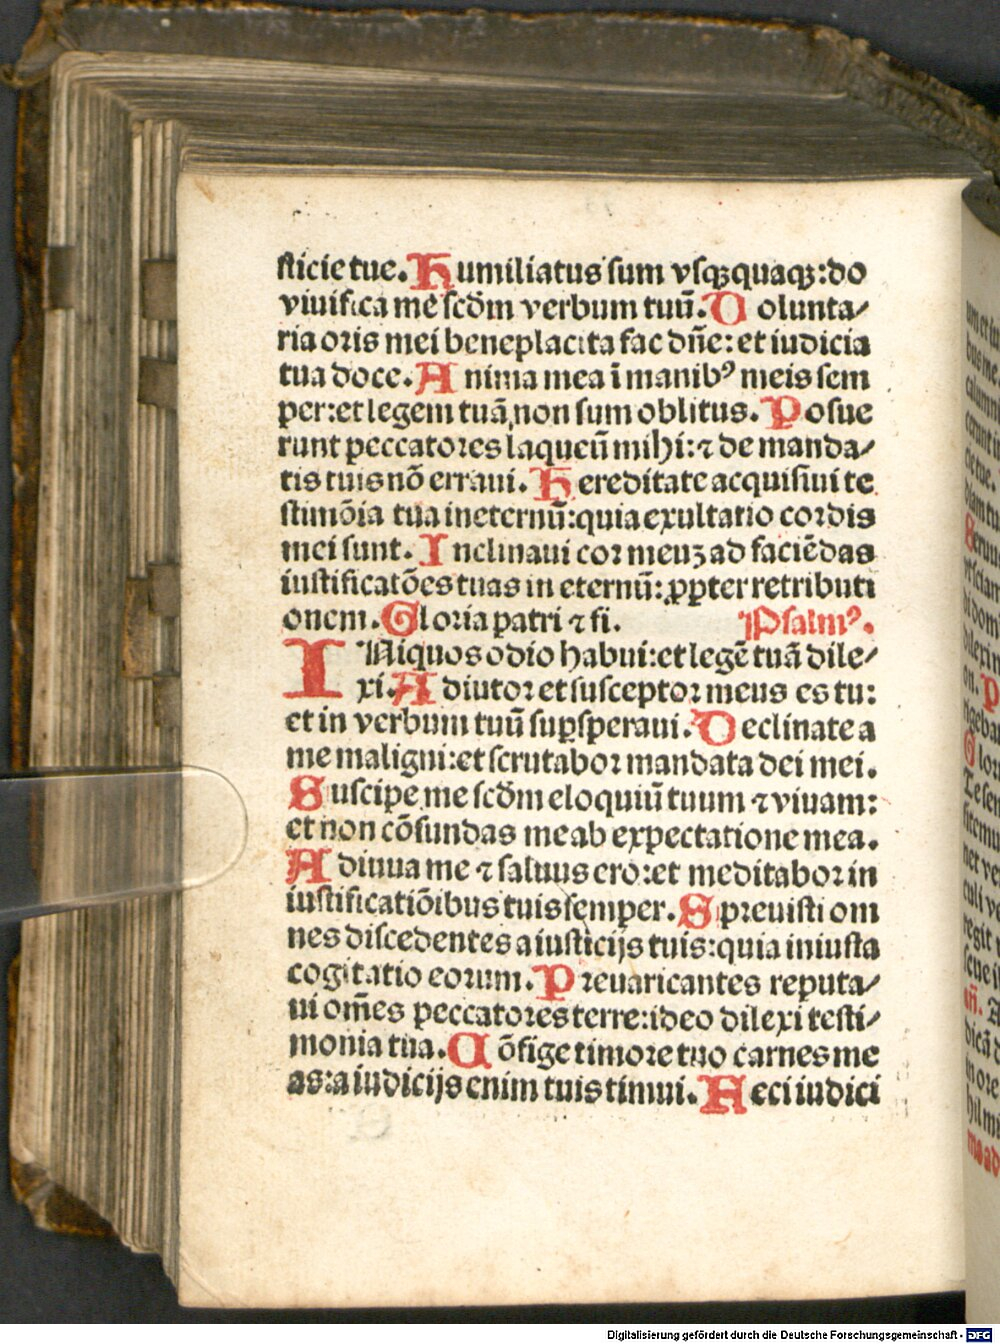 sticie tue. Humiliatus sum vsqꝫquaqꝫ: dn̄o
viuifica me scd̄m verbum tuū. Volunta/
ria oris mei beneplacita fac dn̄e: et iudicia
tua doce. Anima mea ī manibꝰ meis sem
per: et legem tuā non sum oblitus. Posue
runt peccatores laqueū mihi: ⁊ de manda/
tis tuis nō erraui. Hereditate acquisiui te
stimōia tua in eternū: quia exultatio cordis
mei sunt. Inclinaui cor meuꝫ ad faciēdas
iustificatōes tuas in eternū: ꝓpter retributi
onem. Gloria patri ⁊ fi. Psalmꝰ.
INiquos odio habui: et legē tuā dile/
xi. Adiutor et susceptor meus es tu:
et in verbum tuū suꝑsperaui. Declinate a
me maligni: et scrutabor mandata dei mei.
Suscipe me scd̄m eloquiū tuum ⁊ viuam:
et non cōfundas me ab expectatione mea.
Adiuua me ⁊ saluus ero: et meditabor in
iustificatiōibus tuis semper. Spreuisti om
nes discedentes a iusticijs tuis: quia iniusta
cogitatio eorum. Preuaricantes reputa/
ui om̄es peccatores terre: ideo dilexi testi/
monia tua. Cōfige timore tuo carnes me
as: a iudicijs enim tuis timui. Feci iudici
Digitalisierung gefördert durch die Deutsche Forschungsgemeinschaft - DFG